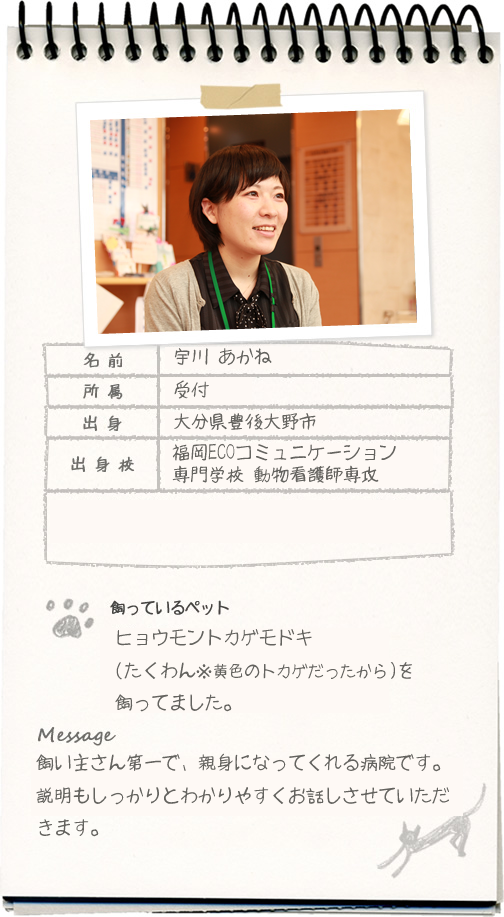 名前 宇川 あかね
所属 受付
出身 大分県豊後大野市
出身校 福岡ECOコミュニケーション
専門学校 動物看護師専攻
飼っているペット
ヒョウモントカゲモドキ
(たくわん※黄色のトカゲだったから)を
飼ってました。
Message
飼い主さん第一で、親身になってくれる病院です。
説明もしっかりとわかりやすくお話しさせていただ
きます。